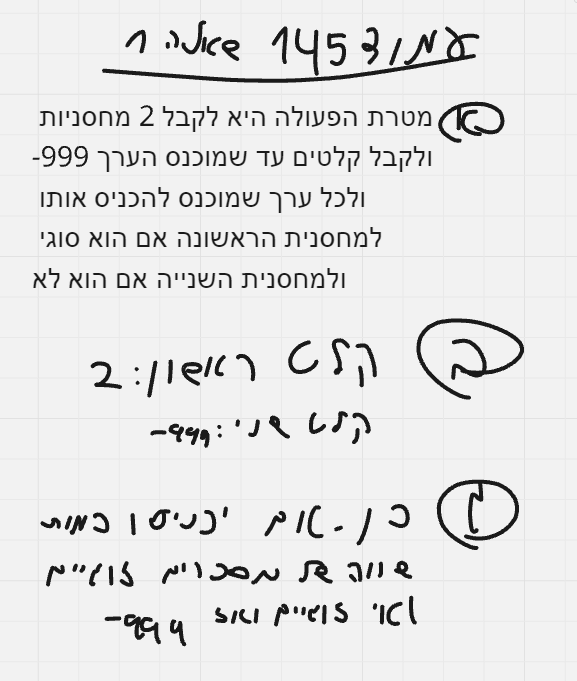 עמוד 145 שאלה 1
א) מטרת הפעולה היא לקבל 2 מחסניות
ולקבל קלטים עד שמוכנס הערך 999-
ולכל ערך שמוכנס להכניס אותו
למחסנית הראשונה אם הוא סוגי
ולמחסנית השנייה אם הוא לא
ב) קלט ראשון: 2
קלט שני: 999-
ג) כן. אם יכניסו כמות
שווה של מספרים זוגיים
ואי זוגיים ואז 999-